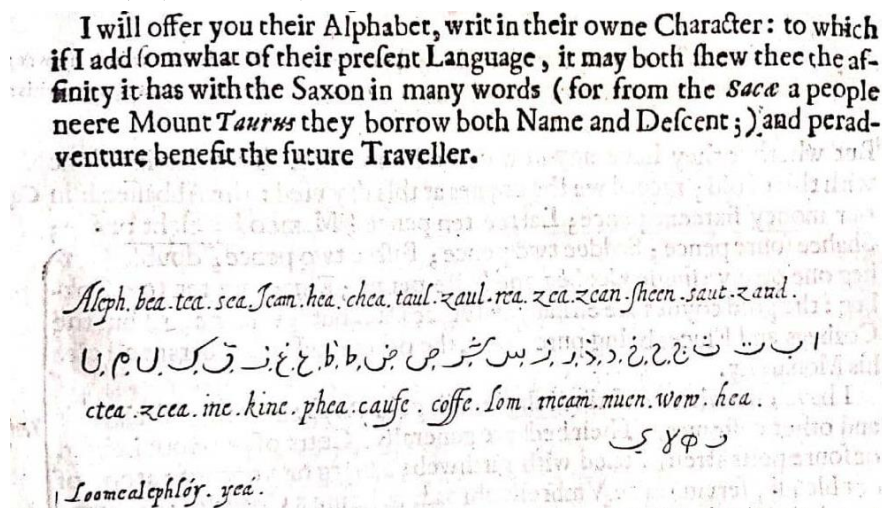 I will offer you their Alphabet, writ in their owne Character: to which
if I add ſomwhat of their preſent Language, it may both ſhew thee the af-
finity it has with the Saxon in many words (for from the Sacæ a people
neere Mount Taurus they borrow both Name and Deſcent;) and perad-
venture benefit the future Traveller.
Aleph. bea. tea. sea. Jeam. hea. chea. taul. zaul. rea. zea. zean. ſheen. saut. zaud.
ا ب ت ث ج ح خ د ذ ر ز س ش ص ض ط ظ ع غ ف ق ک ل م ن
ctea. zcea. ine. kine. phea. cauſe. coffe. lom. meam. nuen. wow. hea.
و ه لا ی
Loomealephloy. yea.